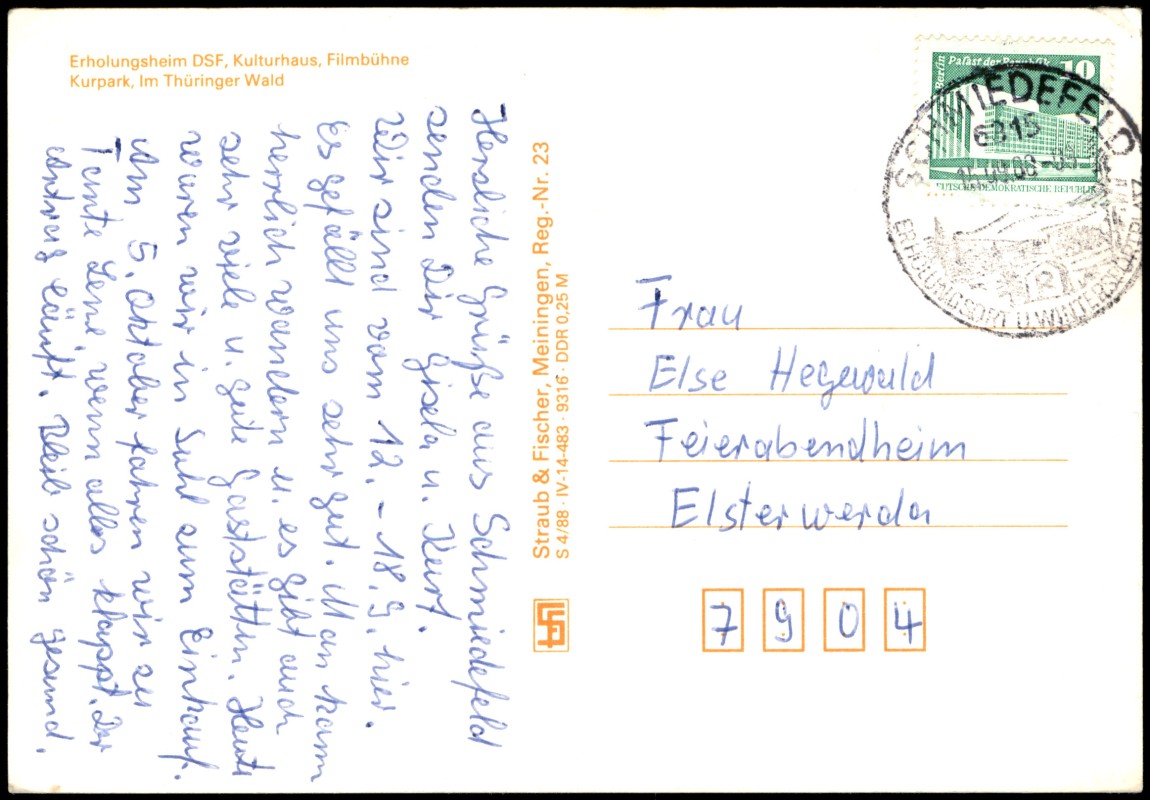 Erholungsheim DSF, Kulturhaus, Filmbühne
Kurpark, Im Thüringer Wald
Herzliche Grüße aus Schmiedefeld
senden Dir Gisela u. Kurt.
Wir sind vom 12. - 18. 9. hier.
Es gefällt uns sehr gut. Man kann
herrlich wandern u. es gibt auch
sehr viele u. gute Gaststätten. Heute
waren wir in Suhl zum Einkauf.
Am 5. Oktober fahren wir zu
Tante Lene, wenn alles klappt. Der
Antrag läuft. Bleib schön gesund.
Straub & Fischer, Meiningen, Reg.-Nr. 23
S 4/88 · IV-14-483 · 9316 · DDR 0,25 M
Berlin Palast der Republik 10
DEUTSCHE DEMOKRATISCHE REPUBLIK
SCHMIEDEFELD
6315
ERHOLUNGSORT U. WINTERSPORTPLATZ
Frau
Else Hegewald
Feierabendheim
Elsterwerda
7904